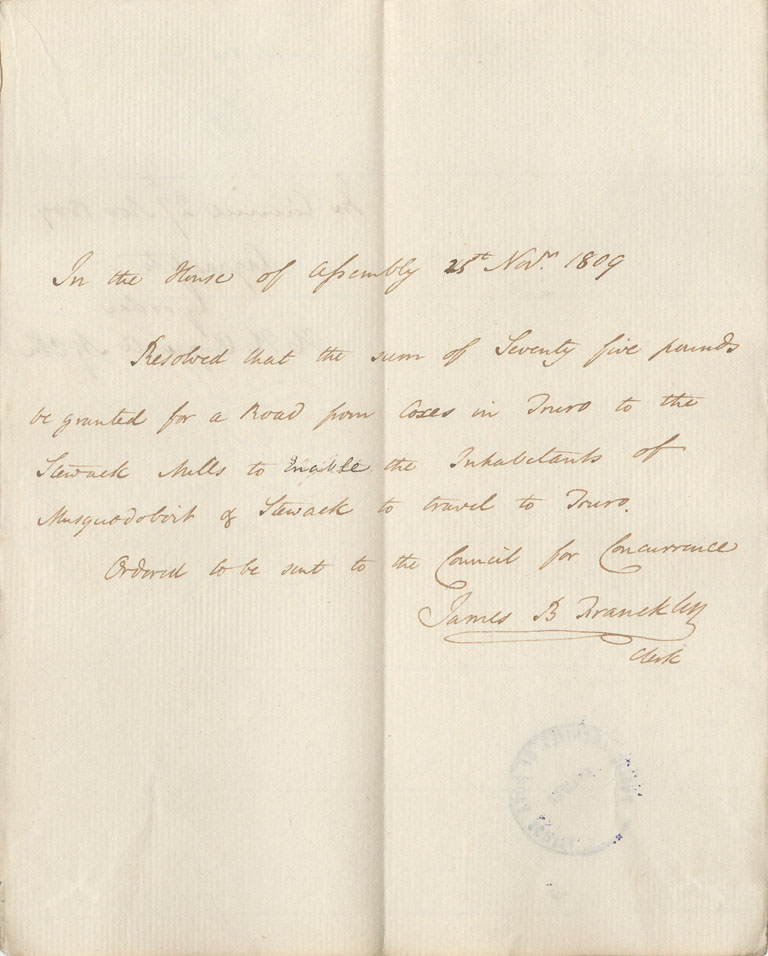 In the House of Assembly 25th Novr. 1809
Resolved that the sum of Seventy five pounds
be granted for a Road from Coxes in Truro to the
Stewack Mills to enable the Inhabitants of
Musquodoboit & Stewack to travel to Truro.
Ordered to be sent to the Council for Concurrence
James B Franckley
Clerk